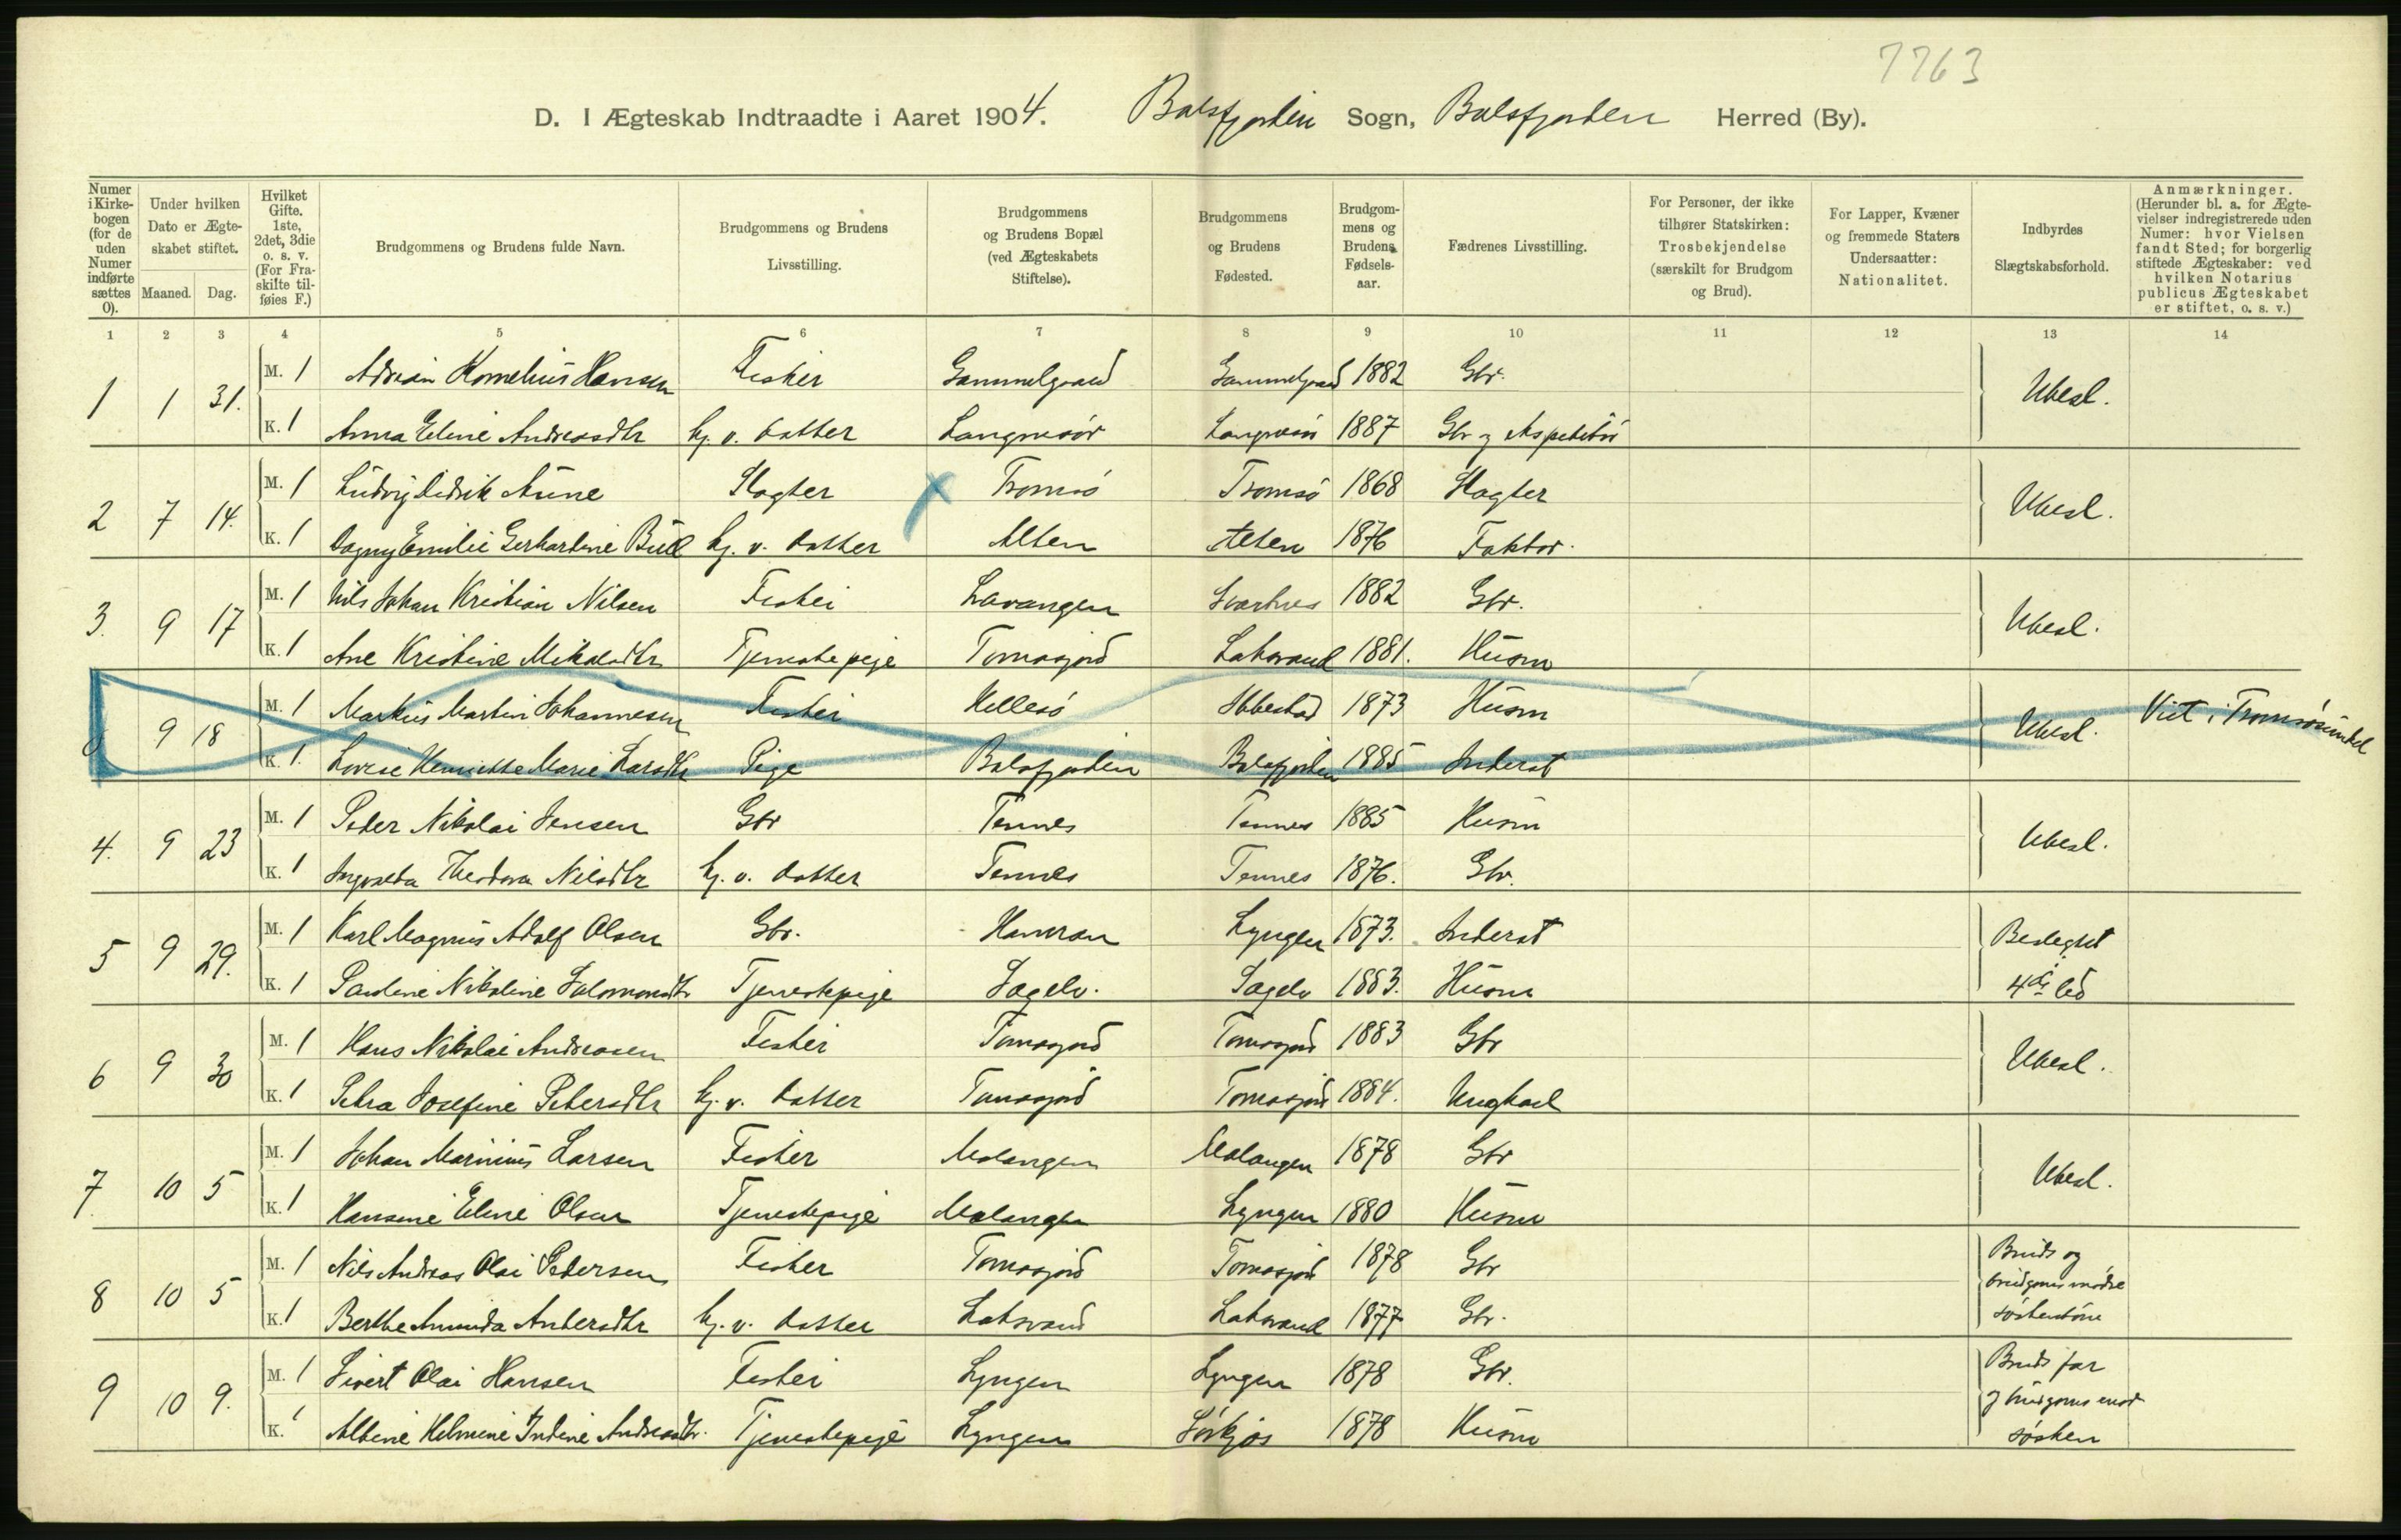 7763
D. I Ægteskab Indtraadte i Aaret 1904. Balsfjorden Sogn, Balsfjorden Herred (By).
Numer i Kirkebogen (for de uden Numer indførte sættes 0).
Under hvilken Dato er Ægteskabet stiftet. Maaned. Dag.
Hvilket Gifte. 1ste, 2det, 3die o. s. v. (For Fraskilte tilføies F.)
Brudgommens og Brudens fulde Navn.
Brudgommens og Brudens Livsstilling.
Brudgommens og Brudens Bopæl (ved Ægteskabets Stiftelse).
Brudgommens og Brudens Fødested.
Brudgommens og Brudens Fødselsaar.
Fædrenes Livsstilling.
For Personer, der ikke tilhører Statskirken: Trosbekjendelse (særskilt for Brudgom og Brud).
For Lapper, Kvæner og fremmede Staters Undersaatter: Nationalitet.
Indbyrdes Slægtskabsforhold.
Anmærkninger. (Herunder bl. a. for Ægtevielser indregistrerede uden Numer: hvor Vielsen fandt Sted; for borgerlig stiftede Ægteskaber: ved hvilken Notarius publicus Ægteskabet er stiftet, o. s. v.)
1 2 3 4 5 6 7 8 9 10 11 12 13 14
1 1 31. M. 1 Adrian Kornelius Hansen Fisker Gammelgaard Gammelgaard 1882 Gbr. Ubesl.
K. 1 Anna Eline Andreasdtr hj. v. datter Langnesør Langnesør 1887 Gbr og
2 7 14. M. 1 Ludvig Didrik Aune Slagter Tromsø Tromsø 1868 Slagter Ubesl.
K. 1 Dagny Emilie Gerhardine Bull hj. v. datter Alten Alten 1876 Faktor.
3. 9 17 M. 1 Nils Johan Kristian Nilsen Fisker Lavangen Svartnes 1882 Gbr. Ubesl.
K. 1 Ane Kristine Mikaldtr Tjenestepige Tomasjord Laksvand 1881. Husm
0 9 18 M. 1 Markus Martin Johannesen Fisker Hillesø Ibbestad 1873 Husm Ubesl. Viet i Tromsøsundet
K. 1. Lovise Henriette Marie Larsdtr Pige Balsfjorden Balsfjorden 1885 Inderst
4. 9 23 M. 1 Peder Nikolai Jensen Gbr Tennes Tennes 1885 Husm Ubesl.
K. 1 Ingvalda Theodora Nilsdtr hj. v. datter Tennes Tennes 1876. Gbr.
5 9 29. M. 1 Karl Magnus Adolf Olsen Gbr. Lyngen 1873. Inderst Beslegtet
K. 1 Pauline Nikoline Salomonsdtr Tjenestepige Sagelv. Sagelv 1883. Husm 4de led
6 9 30 M. 1 Hans Nikolai Andreasen Fisker Tomasjord Tomasjord 1883 Gbr Ubesl.
K. 1 Petra Josefine Pedersdtr hj. v. datter Tomasjord Tomasjord 1884. Ungkarl
7. 10 5 M. 1 Johan Marinius Larsen Fisker Malangen Malangen 1878 Gbr Ubesl.
K. 1 Hansine Eline Olsen Tjenestepige Malangen Lyngen 1880 Husm
8 10 5 M. 1 Nils Andreas Olai Pedersen Fisker Tomasjord Tomasjord 1878 Gbr Bruds og brudgoms mødre
K. 1 Berthe Amunda Andersdtr hj. v. datter Laksvand Laksvand 1877 Gbr. søskenbørn
9 10 9. M. 1 Sivert Olai Hansen Fisker Lyngen Lyngen 1878 Gbr. Bruds far og brudgoms mor
K. 1 Albine Helmine Indine Andreasdtr. Tjenestepige Lyngen Sørkjos 1878 Husm søsken